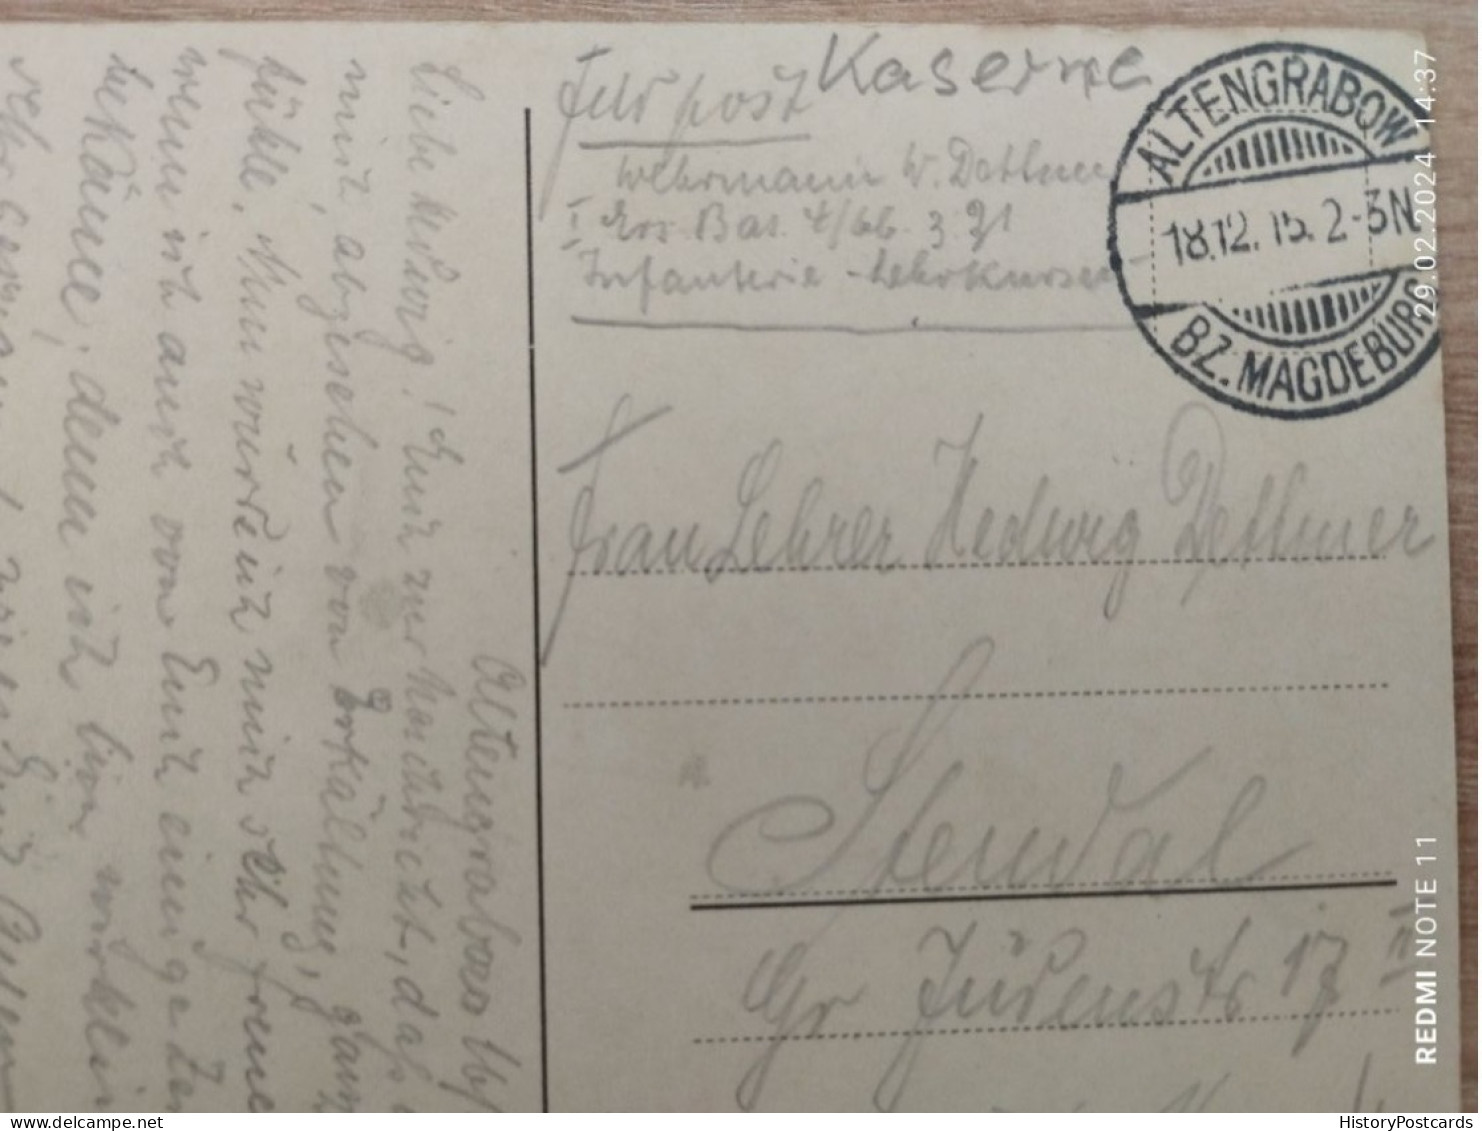 Feldpost Kaserne
Wehrmann W. Dettmer
I Ers. Bat. 4/66.
Infanterie-Lehrkursen
ALTENGRABOW
18.12.15. 2-3N
BZ. MAGDEBURG
Frau Lehrer Hedwig Dettmer
Stendal
Gr Judenstr 17
Altengrabow
Liebe Hedwig! Euch zur Nachricht, daß
mich, abgesehen von Erkältung, ganz
fühle. Nun würde ich mich sehr freuen
wenn ich auch von Euch einige Zei
bekäme, denn ich bin wirklich
29.02.2024 14:37
REDMI NOTE 11
HistoryPostcards
delcampe.net